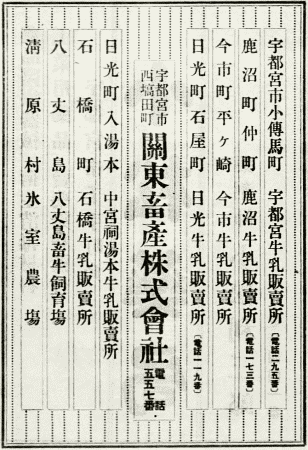 宇都宮市小傳馬町 宇都宮牛乳販賣所（電話二九五番）
鹿沼町仲町 鹿沼牛乳販賣所（電話一七三番）
今市町平ヶ崎 今市牛乳販賣所
日光町石屋町 日光牛乳販賣所（電話一一九番）
宇都宮市西塙田町 關東畜産株式會社 電話・五五七番
日光町入湯本 中宮祠湯本牛乳販賣所
石橋町 石橋牛乳販賣所
八丈島 八丈島畜牛飼育塲
清原村氷室農塲